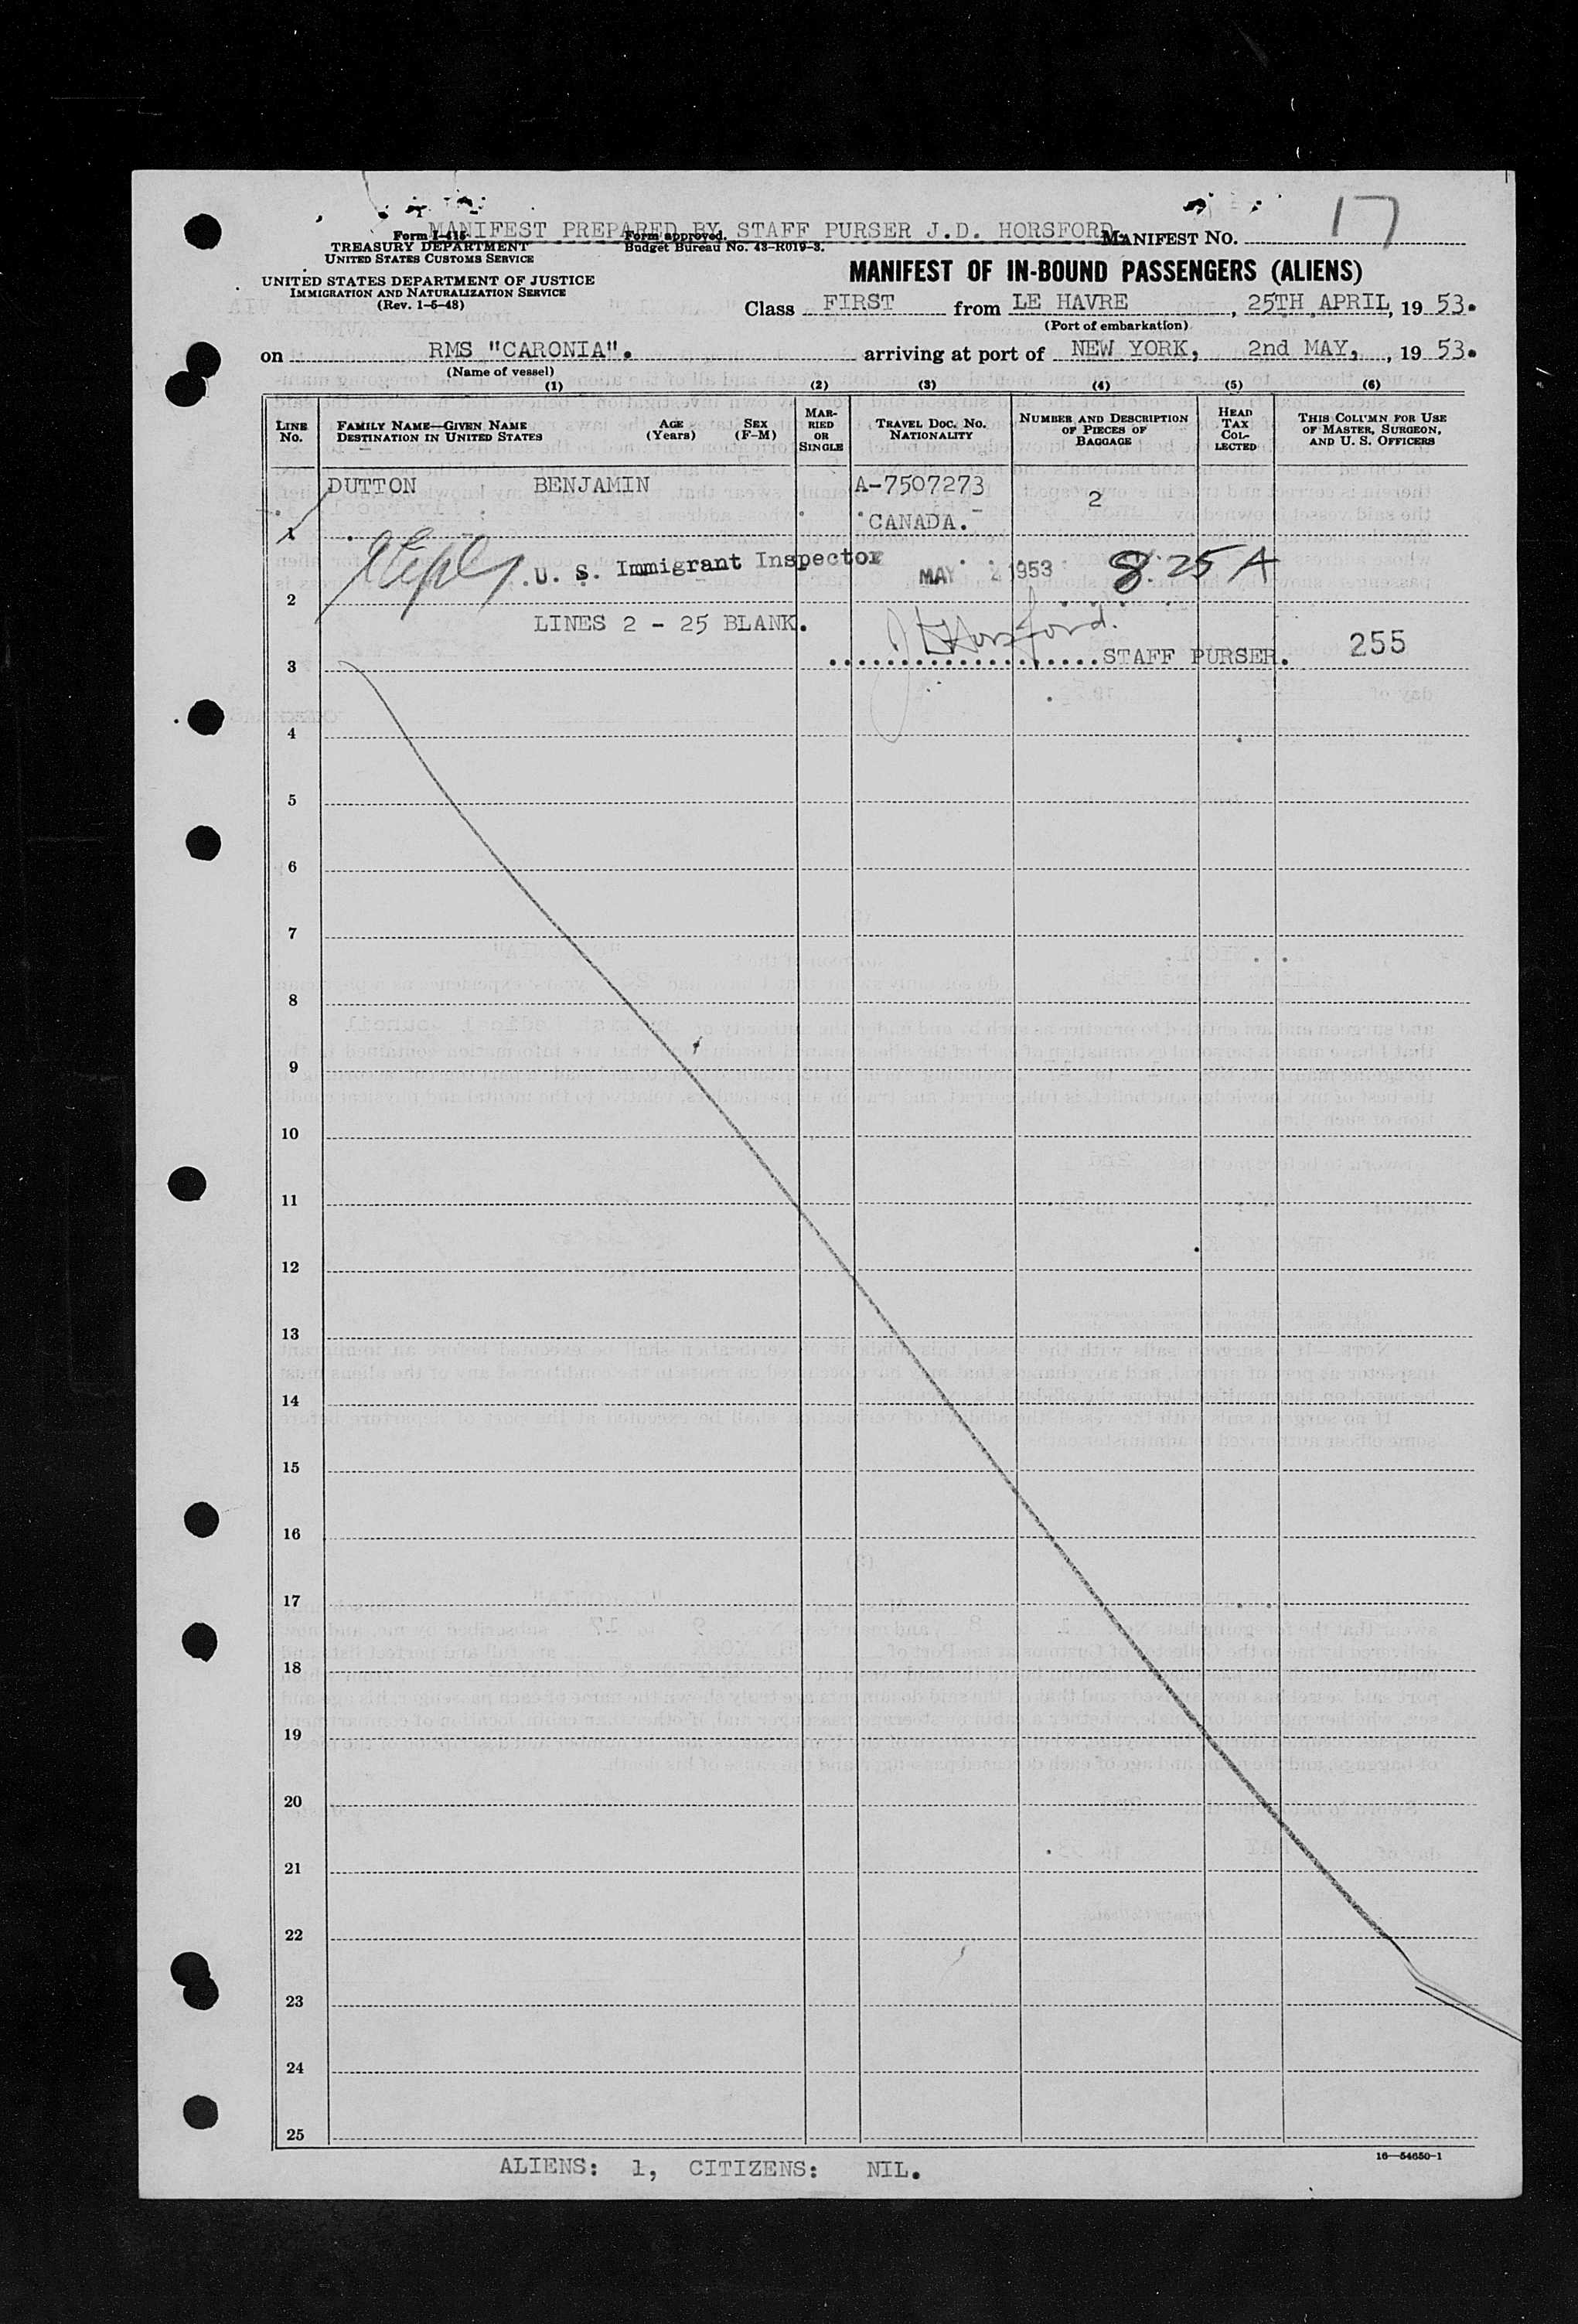 17
MANIFEST PREPARED BY STAFF PURSER J.D. HORSFORD.
Form I-415
TREASURY DEPARTMENT
UNITED STATES CUSTOMS SERVICE
Form approved.
Budget Bureau No. 43-R019-3.
MANIFEST NO.
UNITED STATES DEPARTMENT OF JUSTICE
IMMIGRATION AND NATURALIZATION SERVICE
(Rev. 1-5-48)
MANIFEST OF IN-BOUND PASSENGERS (ALIENS)
Class FIRST from LE HAVRE, 25TH APRIL, 19 53.
(Port of embarkation)
on RMS "CARONIA". arriving at port of NEW YORK, 2nd MAY, , 19 53.
(Name of vessel)
(1) (2) (3) (4) (5) (6)
LINE No.
FAMILY NAME—GIVEN NAME
DESTINATION IN UNITED STATES
AGE (Years)
SEX (F-M)
MARRIED OR SINGLE
TRAVEL DOC. NO.
NATIONALITY
NUMBER AND DESCRIPTION
OF PIECES OF
BAGGAGE
HEAD
TAX
COL-
LECTED
THIS COLUMN FOR USE
OF MASTER, SURGEON,
AND U. S. OFFICERS
DUTTON BENJAMIN A-7507273 2
1 CANADA.
U. S. Immigrant Inspector MAY 2 1953 8.25 A
2
LINES 2 - 25 BLANK. J D Horsford.
3 STAFF PURSER. 255
4
5
6
7
8
9
10
11
12
13
14
15
16
17
18
19
20
21
22
23
24
25
16—54650-1
ALIENS: 1, CITIZENS: NIL.